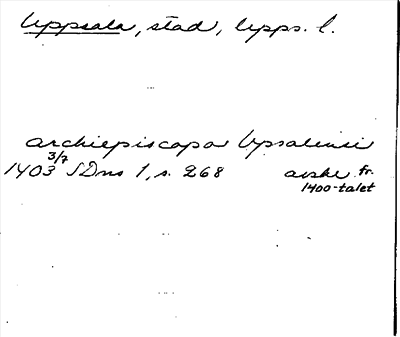 Uppsala, stad, Upps. l.
archiepiscopo Upsaliensi
1403 3/7 SDns 1, s. 268 avskr. fr. 1400-talet